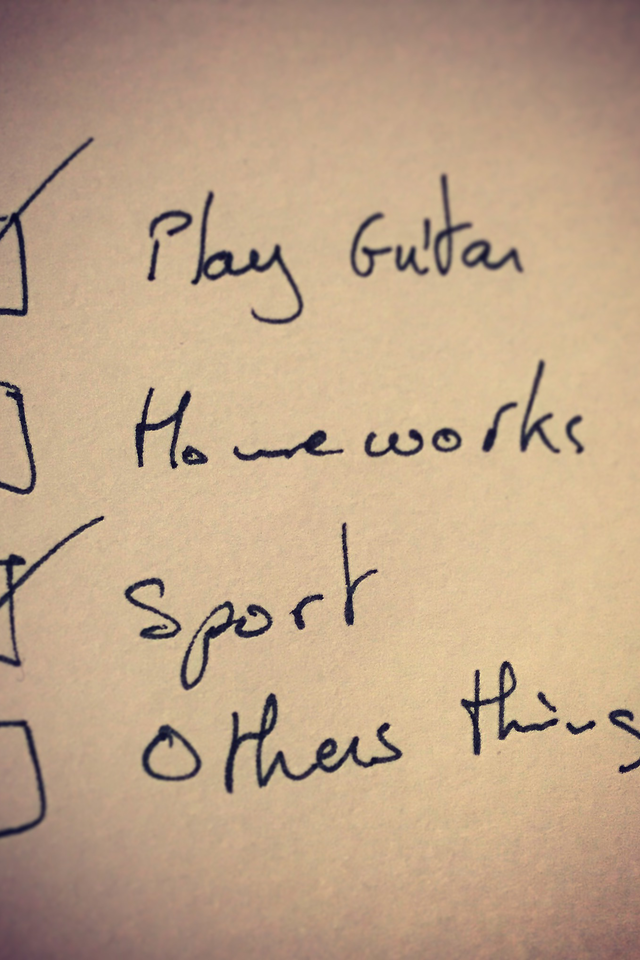 Play Guitar
Homeworks
Sport
Others thing